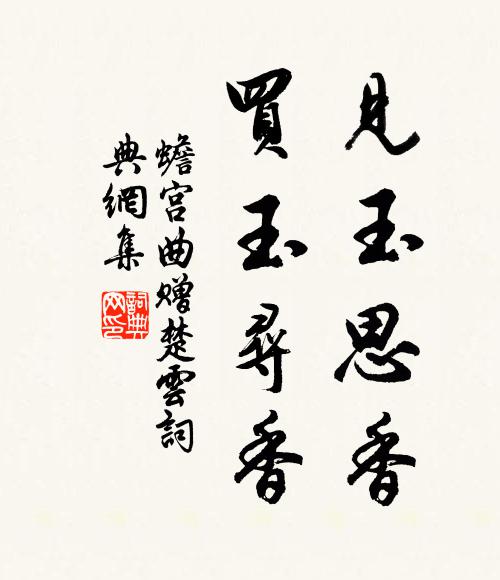 見玉思香
買玉尋香
蟾宮曲贈楚雲詞
典網集
詞典网印